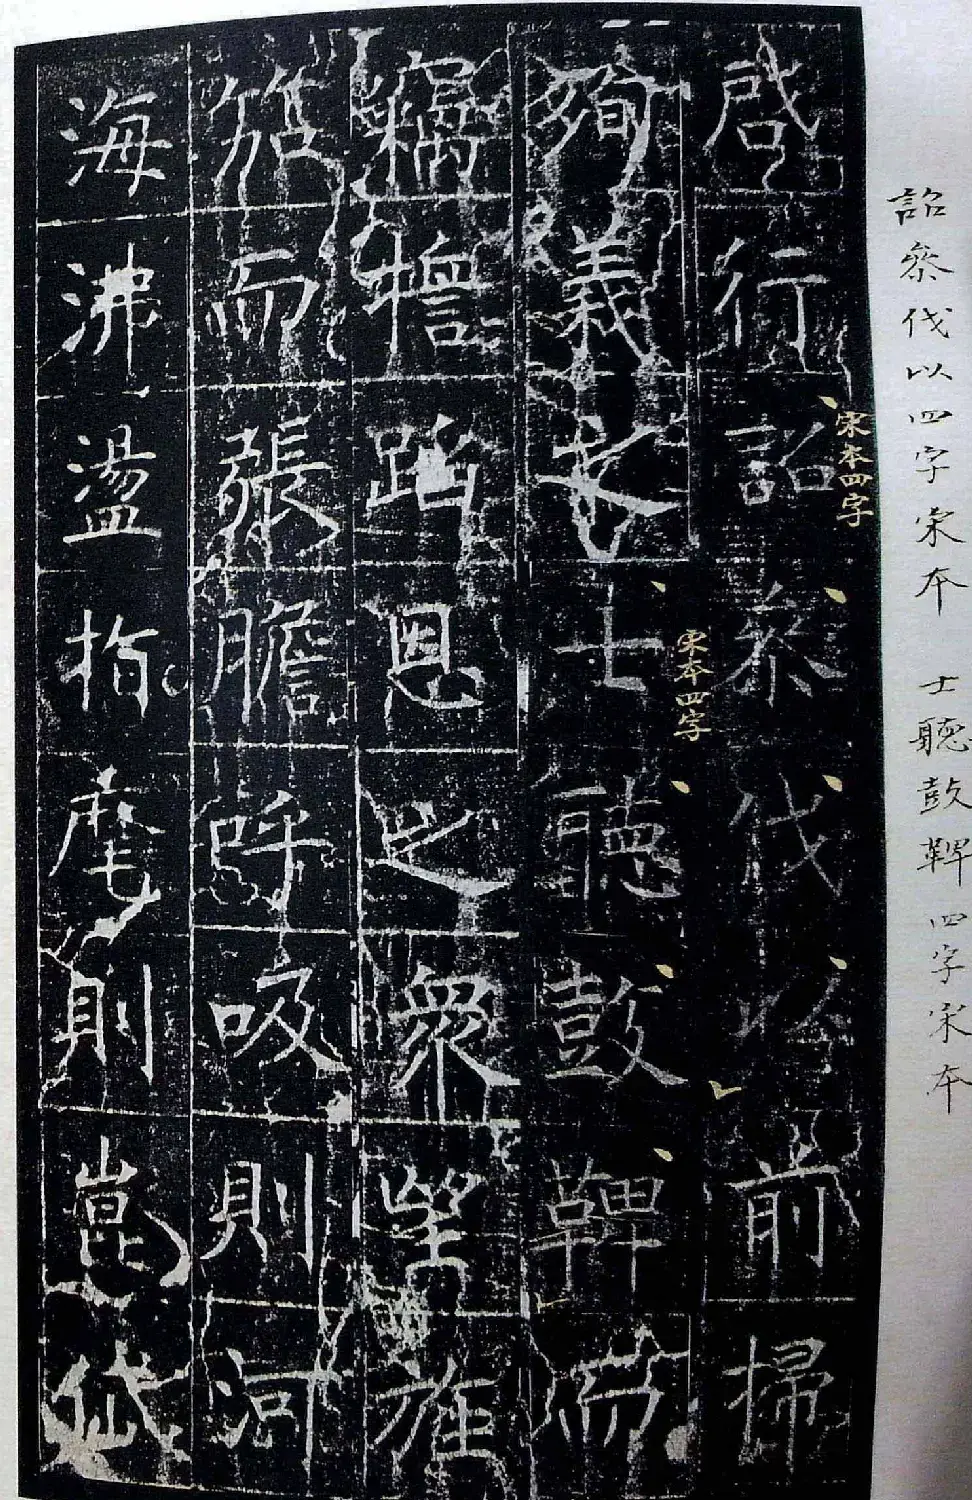 詔叅伐以四字宋本 士聽鼓鞞四字宋本
啟行詔叅伐以前掃
宋本四字
殉義之士聽鼓鞞而
宋本四字
蹈恩之眾望旌
而張膽呼吸則河
海沸盪指麾則崑岱